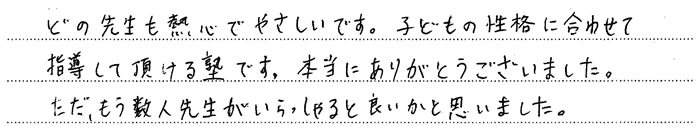 どの先生も熱心でやさしいです。子どもの性格に合わせて
指導して頂ける塾です。本当にありがとうございました。
ただ、もう数人先生がいらっしゃると良いかと思いました。